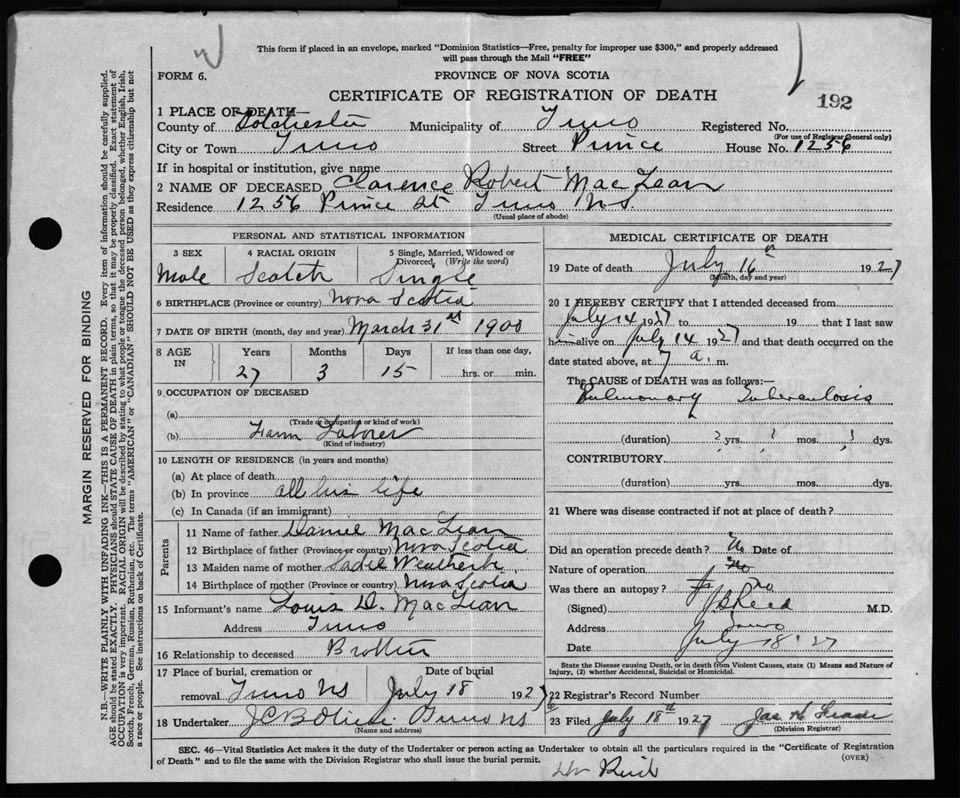 This form if placed in an envelope, marked "Dominion Statistics—Free, penalty for improper use $300," and properly addressed
will pass through the Mail "FREE"
FORM 6.
PROVINCE OF NOVA SCOTIA
CERTIFICATE OF REGISTRATION OF DEATH
192
1 PLACE OF DEATH—
County of Colchester Municipality of Truro Registered No.
(For use of Registrar General only)
City or Town Truro Street Prince House No. 1256
If in hospital or institution, give name
2 NAME OF DECEASED Clarence Robert MacLean
Residence 1256 Prince St Truro N.S.
(Usual place of abode)
PERSONAL AND STATISTICAL INFORMATION
3 SEX 4 RACIAL ORIGIN 5 Single, Married, Widowed or
Divorced, (Write the word)
Male Scotch Single
6 BIRTHPLACE (Province or country) Nova Scotia
7 DATE OF BIRTH (month, day and year) March 31st 1900
8 AGE IN Years Months Days If less than one day,
27 3 15 hrs. or min.
9 OCCUPATION OF DECEASED
(a)
(Trade or occupation or kind of work)
(b) Farm Laborer
(Kind of industry)
10 LENGTH OF RESIDENCE (in years and months)
(a) At place of death
(b) In province all his life
(c) In Canada (if an immigrant)
Parents
11 Name of father Daniel MacLean
12 Birthplace of father (Province or country) Nova Scotia
13 Maiden name of mother Sadie
14 Birthplace of mother (Province or country) Nova Scotia
15 Informant's name Louis D. MacLean
Address Truro
16 Relationship to deceased Brother
17 Place of burial, cremation or Date of burial
removal Truro NS July 18 1927
18 Undertaker Truro NS
(Name and address)
MEDICAL CERTIFICATE OF DEATH
19 Date of death July 16th 1927
(Month, day and year)
20 I HEREBY CERTIFY that I attended deceased from
July 14 1927 to 19 that I last saw
him alive on July 14 1927 and that death occurred on the
date stated above, at 7 a. m.
The CAUSE of DEATH was as follows:—
Pulmonary Tuberculosis
(duration) ? yrs. ? mos. ? dys.
CONTRIBUTORY
(duration) yrs. mos. dys.
21 Where was disease contracted if not at place of death?
Did an operation precede death? No Date of
Nature of operation
Was there an autopsy? No
(Signed) M.D.
Address Truro
July 18 '27
State the Disease causing Death, or in death from Violent Causes, state (1) Means and Nature of
Injury, and (2) whether Accidental, Suicidal or Homicidal.
22 Registrar's Record Number
23 Filed July 18th 1927
(Division Registrar)
SEC. 46—Vital Statistics Act makes it the duty of the Undertaker or person acting as Undertaker to obtain all the particulars required in the "Certificate of Registration
of Death" and to file the same with the Division Registrar who shall issue the burial permit. (OVER)
MARGIN RESERVED FOR BINDING
N.B.—WRITE PLAINLY, WITH UNFADING INK—THIS IS A PERMANENT RECORD. Every item of information should be carefully supplied.
AGE should be stated EXACTLY. PHYSICIANS should STATE CAUSE OF DEATH in plain terms, so that it may be properly classified. Exact statement of
OCCUPATION is very important. RACIAL ORIGIN will be described by stating to what people or tongue the deceased person belonged, whether English, Irish,
Scotch, French, German, Russian, Ruthenian, etc. The terms "AMERICAN" or "CANADIAN" SHOULD NOT BE USED as they express citizenship but not
a race or people. See instructions on back of Certificate.